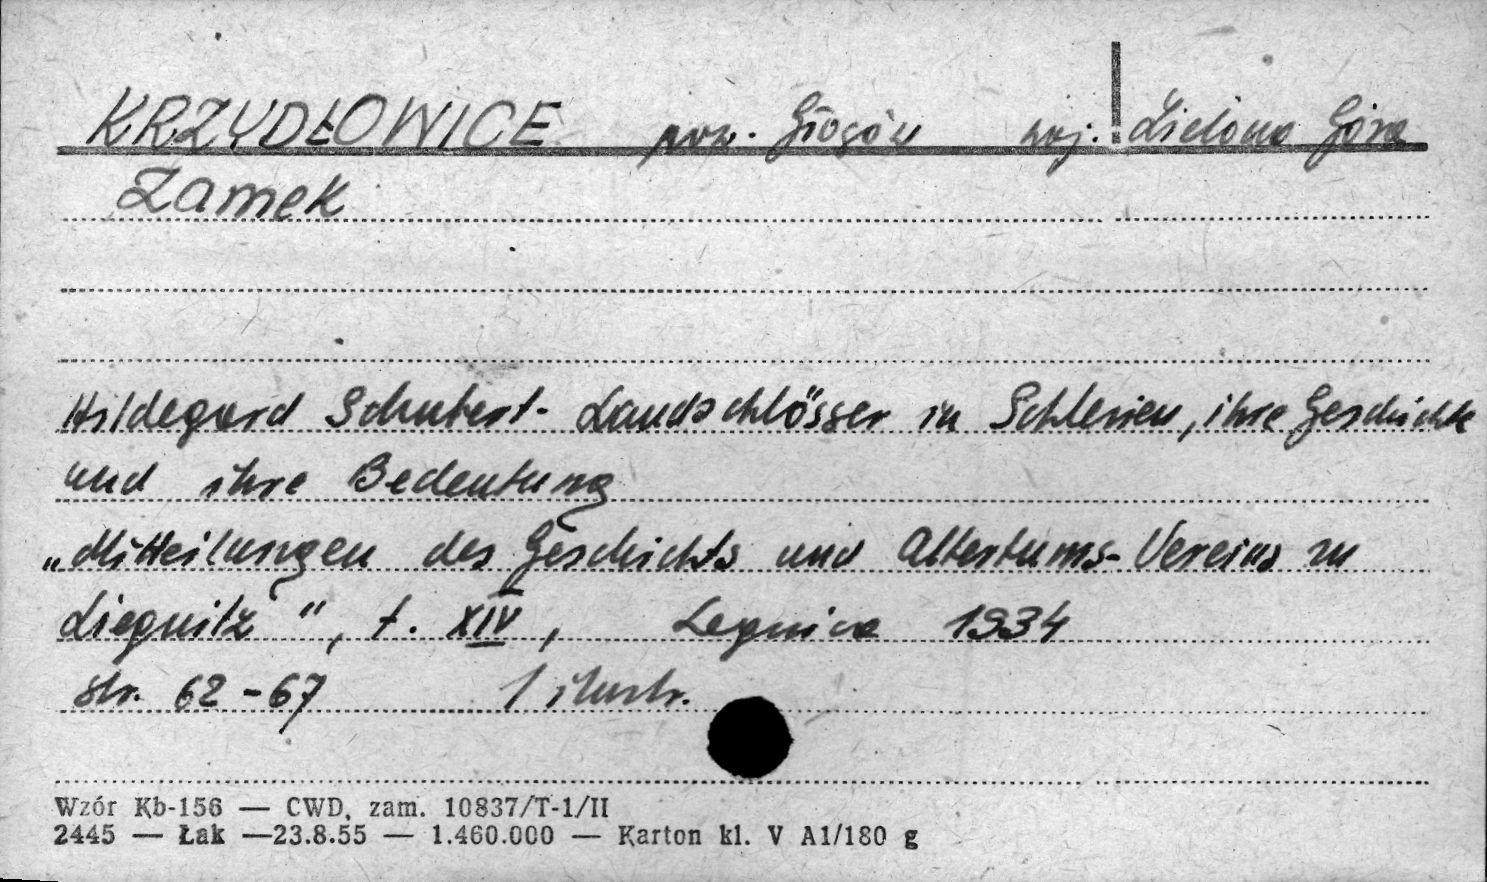 KRZYDŁOWICE pow. Głogów woj. Zielona Góra
Zamek
Hildegard Schubert - Landschlösser in Schlesien, ihre Geschichte
und ihre Bedeutung
„Mitteilungen des Geschichts und Altertums-Vereins zu
Liegnitz", t. XIV, Legnica 1934
str. 62-67 1 ilustr.
Wzór Kb-156 — CWD, zam. 10837/T-1/II
2445 — Łak —23.8.55 — 1.460.000 — Karton kl. V A1/180 g